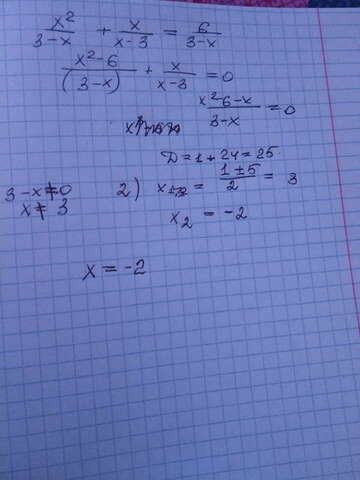 x²/(3-x) + x/(x-3) = 6/(3-x)
(x²-6)/(3-x) + x/(x-3) = 0
(x²-6-x)/(3-x) = 0
D=1+24=25
3-x≠0
x≠3
2) x₁,₂ = (1±5)/2 = 3
x₂ = -2
x = -2